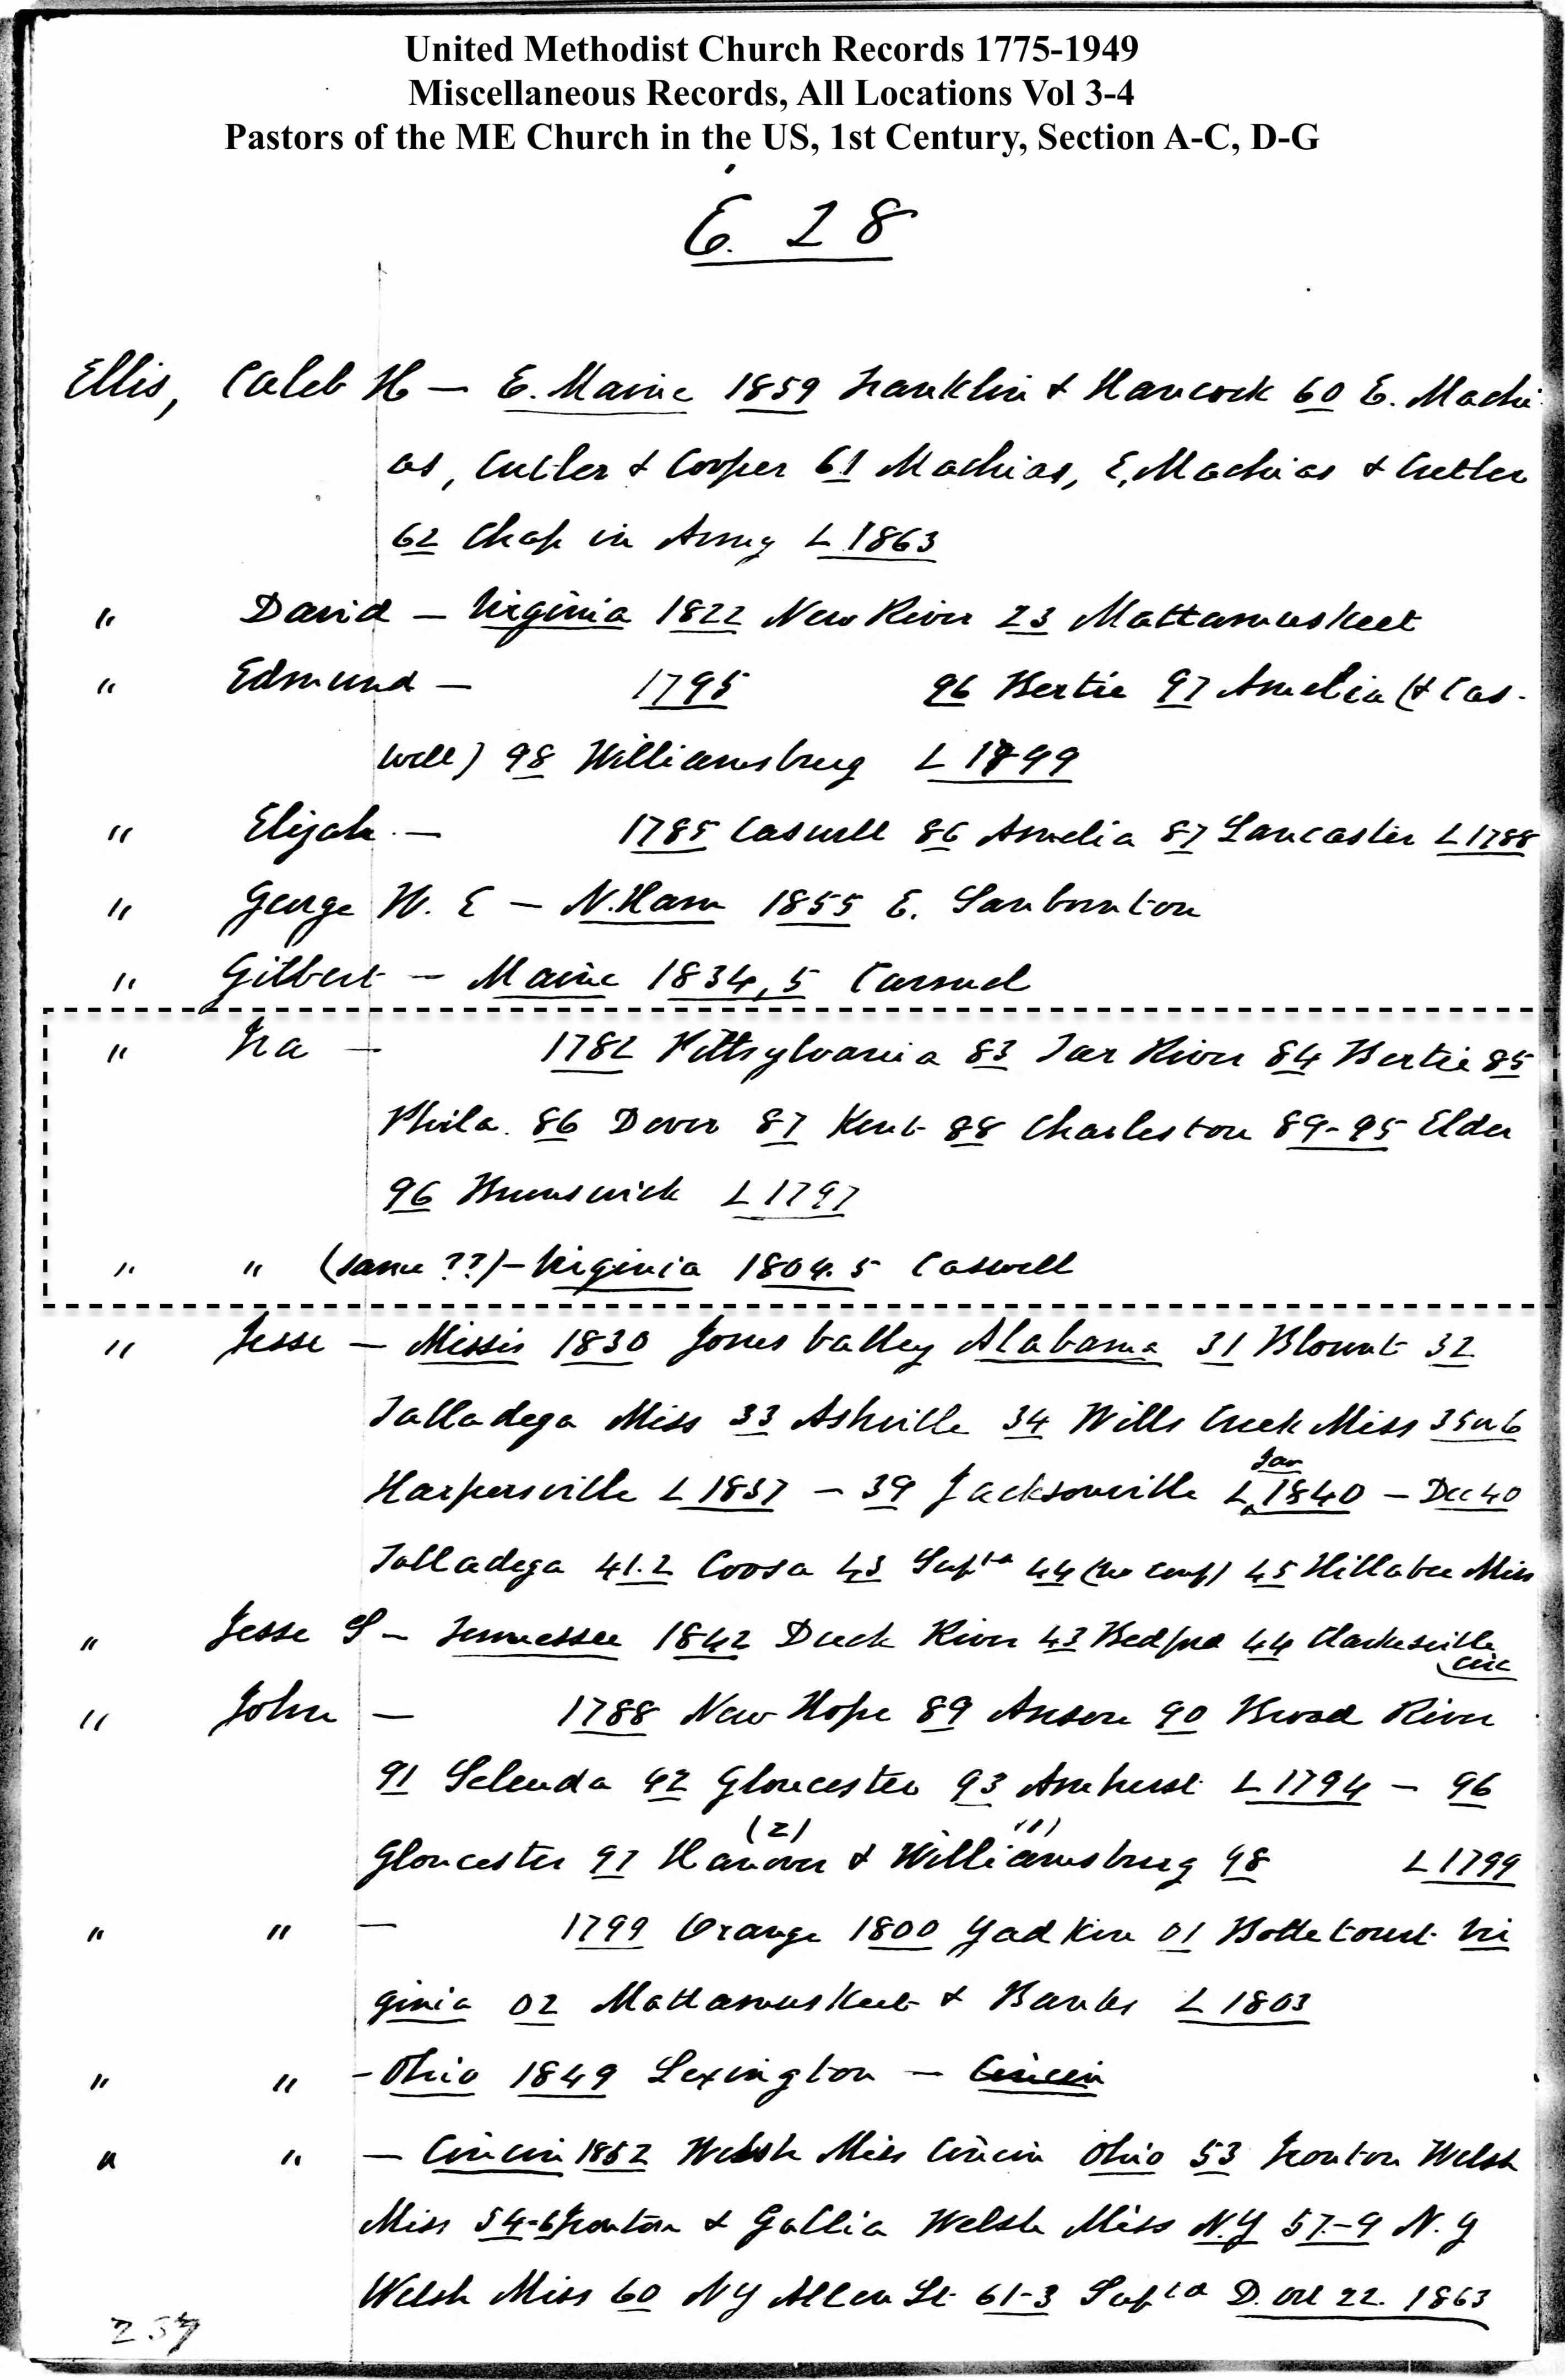 United Methodist Church Records 1775-1949
Miscellaneous Records, All Locations Vol 3-4
Pastors of the ME Church in the US, 1st Century, Section A-C, D-G
E. 28
Ellis, Caleb H — E. Maine 1859 Franklin & Hancock 60 E. Machi-
as, Cutler & Cooper 61 Machias, E. Machias & Cutler
62 Chap in Army L 1863
" David — Virginia 1822 New River 23 Mattamuskeet
" Edmund — 1795 96 Bertie 97 Amelia (& Cas-
well) 98 Williamsburg L 1799
" Elijah — 1785 Caswell 86 Amelia 87 Lancaster L 1788
" George W. E — N. Ham 1855 E. Sanbornton
" Gilbert — Maine 1834,5 Carmel
" Ira — 1782 Pittsylvania 83 Tar River 84 Bertie 85
Phila. 86 Dover 87 Kent 88 Charleston 89-95 Elder
96 Brunswick L 1797
" " (same ??) — Virginia 1804.5 Caswell
" Jesse — Missis 1830 Jones Valley Alabama 31 Blount 32
Talladega Miss 33 Ashville 34 Wills Creek Miss 35
Harpersville L 1837 — 39 Jacksonville L Jan 1840 — Dec 40
Talladega 41.2 Coosa 43 Supta 44 (no conf) 45 Hillabee Miss
" Jesse S — Tennessee 1842 Duck River 43 Bedford 44 Clarksville
circ
" John — 1788 New Hope 89 Anson 90 Broad River
91 Seleuda 92 Gloucester 93 Amherst L 1794 — 96
(2) (1)
Gloucester 97 Hanover & Williamsburg 98 L 1799
" " — 1799 Orange 1800 Yadkin 01 Bottetourt Vir
ginia 02 Mattamuskeet & Banks L 1803
" " — Ohio 1849 Lexington — Cincin
" " — Cincin 1852 Welsh Miss Cincin Ohio 53 Ironton Welsh
Miss 54-6 Ironton & Gallia Welsh Miss N.Y 57-9 N.Y
Welsh Miss 60 NY Allen St 61-3 Supta D. Oct 22. 1863